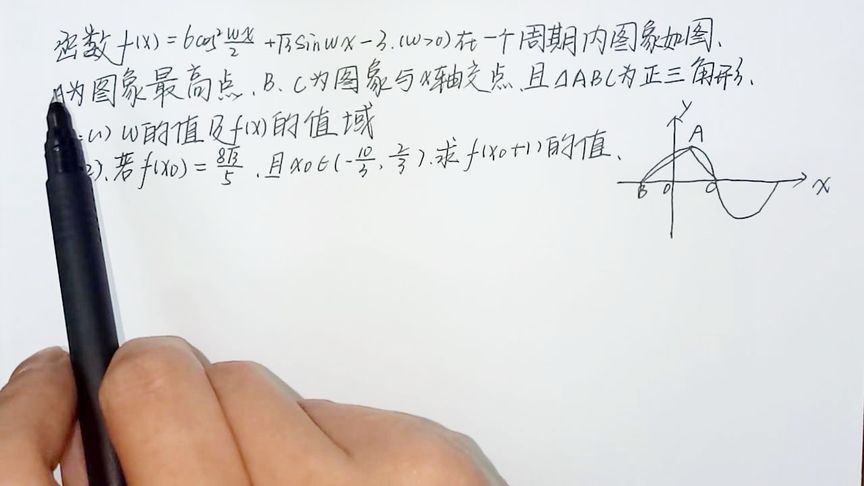 函数f(x)=6cos²\frac{wx}{2}+√3sinwx-3.(w>0)在一个周期内图象如图.
A为图象最高点.B.C为图象与x轴交点.且△ABC为正三角形.
(1)w的值及f(x)的值域
2).若f(x0)=\frac{8√3}{5}.且x0∈(-\frac{10}{3},\frac{2}{3}).求f(x0+1)的值.
y
A
B O C x